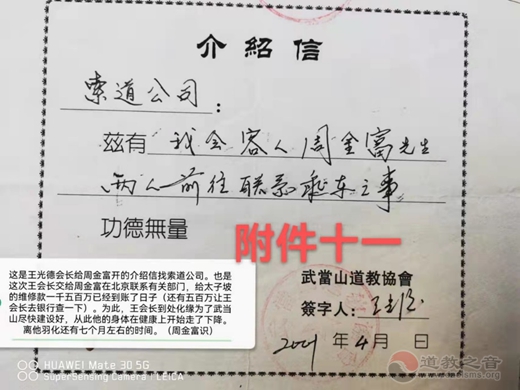 介紹信
索道公司：
兹有 我会客人周金富先生
两人前往联系乘车之事
功德無量
附件十一
武當山道教協會
簽字人：王光德
2001年4月 日
这是王光德会长给周金富开的介绍信找索道公司。也是
这次王会长来了周金富在北京联系有关部门，给太子坡
的维修款一千五百万已经到账了日子（还有五百万让王
会长去银行查一下）。为此，王会长到处化缘为了武当
山尽快建设好，从此他的身体在健康上开始走了下降。
离他羽化还有七个月左右的时间。（周金富识）
HUAWEI Mate 30 5G
SuperSensing Camera | LEICA
道教之音